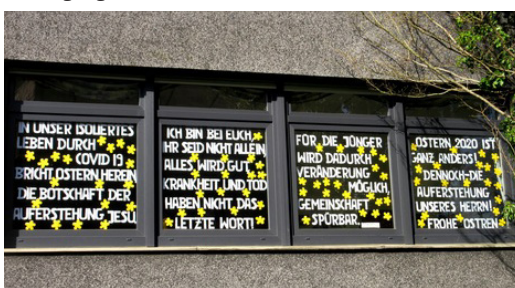 IN UNSER ISOLIERTES
LEBEN DURCH
COVID 19
BRICHT OSTERN HEREIN
DIE BOTSCHAFT DER
AUFERSTEHUNG JESU
ICH BIN BEI EUCH
IHR SEID NICHT ALLEIN
ALLES WIRD GUT
KRANKHEIT UND TOD
HABEN NICHT DAS
LETZTE WORT!
FÜR DIE JÜNGER
WIRD DADURCH
VERÄNDERUNG
MÖGLICH,
GEMEINSCHAFT
SPÜRBAR.
OSTERN 2020 IST
GANZ ANDERS!
DENNOCH-DIE
AUFERSTEHUNG
UNSERES HERRN!
FROHE OSTREN